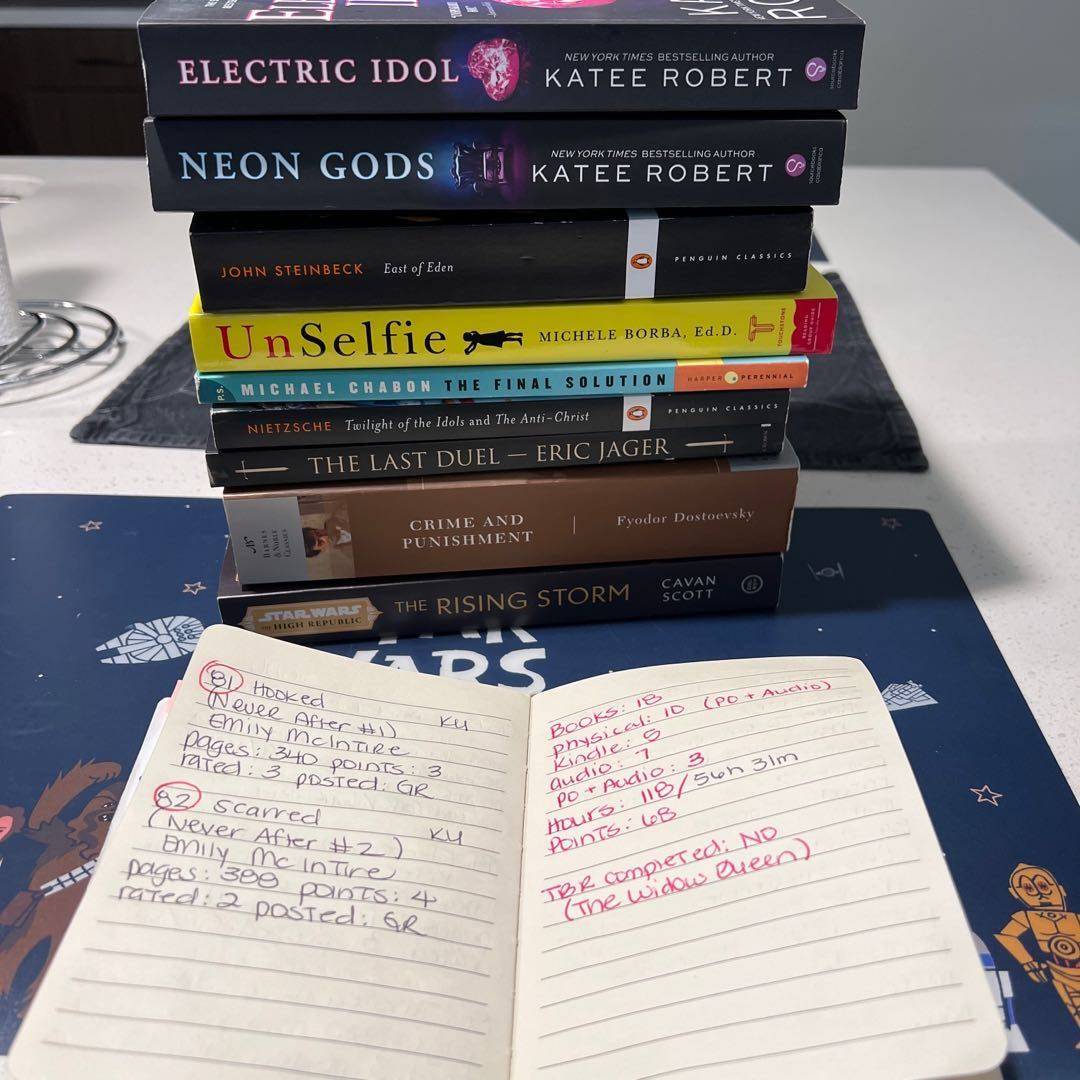 ELECTRIC IDOL NEW YORK TIMES BESTSELLING AUTHOR KATEE ROBERT sourcebooks casablanca
NEON GODS NEW YORK TIMES BESTSELLING AUTHOR KATEE ROBERT sourcebooks casablanca
JOHN STEINBECK East of Eden PENGUIN CLASSICS
UnSelfie MICHELE BORBA, Ed.D. TOUCHSTONE READING GROUP GUIDE
P.S. MICHAEL CHABON THE FINAL SOLUTION HARPER PERENNIAL
NIETZSCHE Twilight of the Idols and The Anti-Christ PENGUIN CLASSICS
THE LAST DUEL — ERIC JAGER
BARNES & NOBLE CLASSICS CRIME AND PUNISHMENT | Fyodor Dostoevsky
STAR WARS THE HIGH REPUBLIC THE RISING STORM CAVAN SCOTT
WARS
81 Hooked
(Never After #1) KU
Emily McIntire
pages: 340 points: 3
rated: 3 posted: GR
82 scarred
(Never After #2) KU
Emily McIntire
pages: 388 points: 4
rated: 2 posted: GR
BOOKS: 18
physical: 10 (PO + Audio)
Kindle: 5
audio: 7
PO + Audio: 3
Hours: 118/56h 31m
Points: 68
TBR completed: NO
(The Widow Queen)